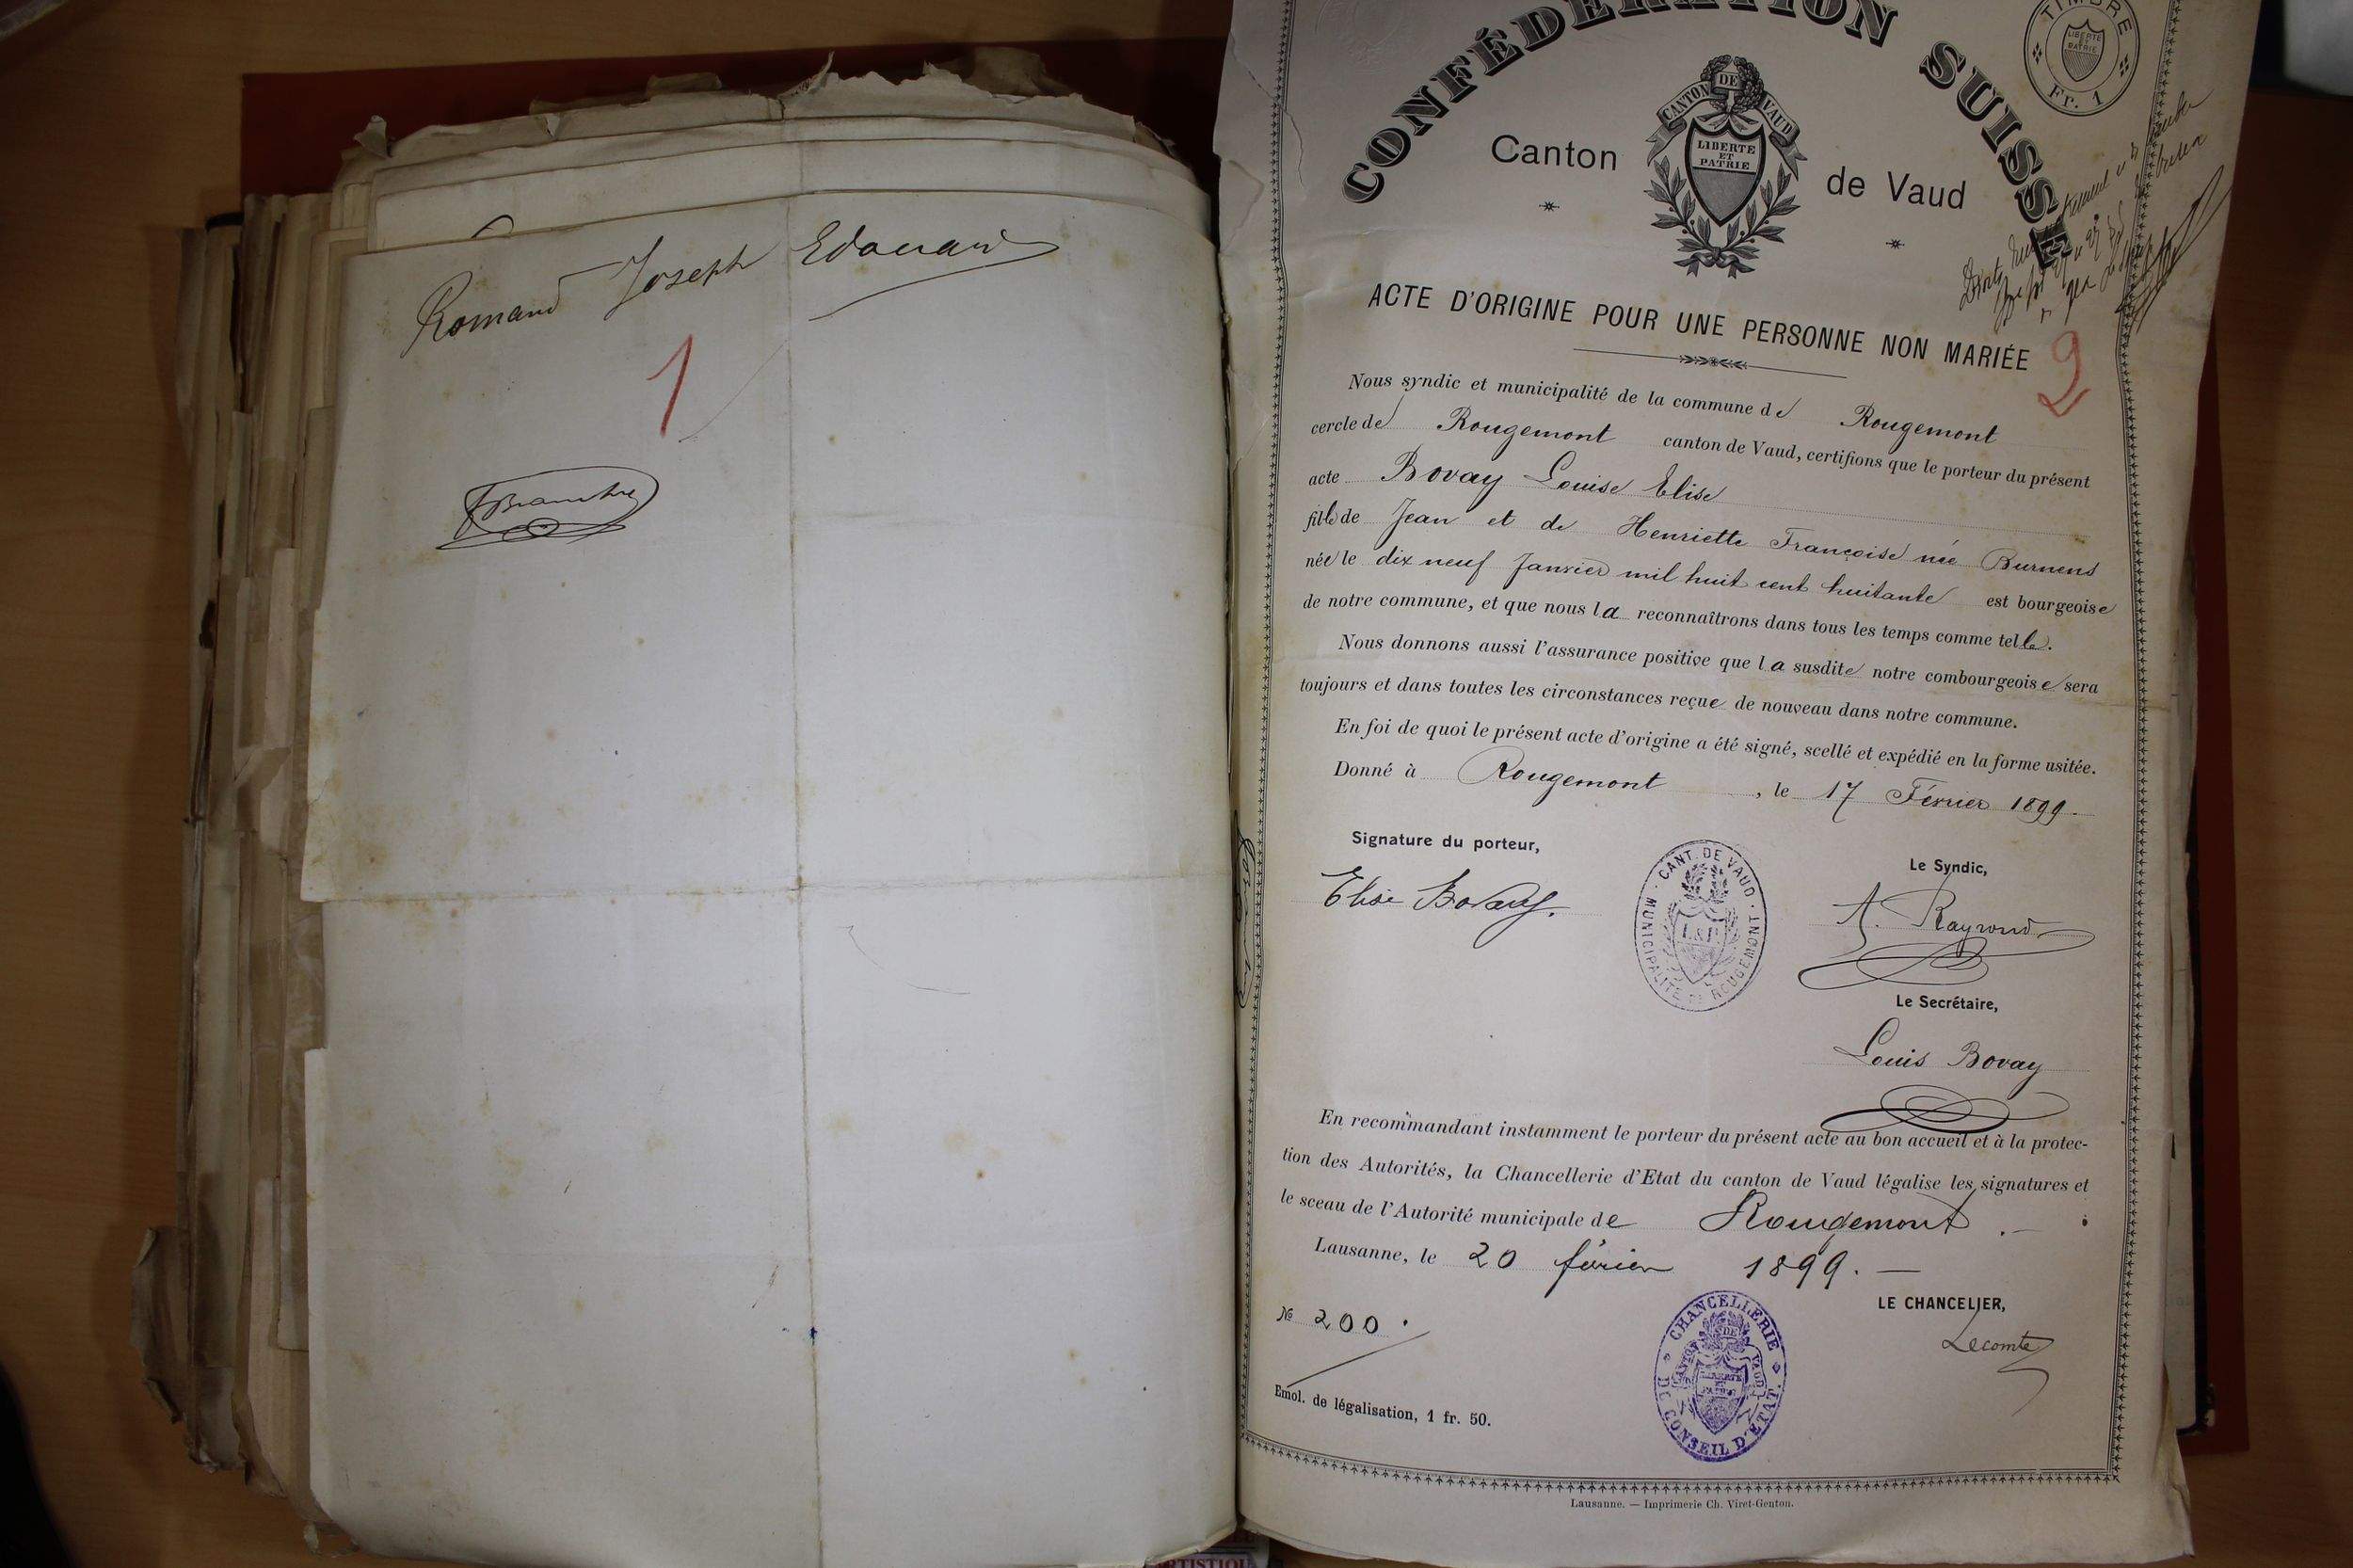 Romand Joseph Edouard
1
CONFÉDÉRATION SUISSE
TIMBRE
LIBERTE
ET
PATRIE
Fr. 1
CANTON DE VAUD
LIBERTE
ET
PATRIE
Canton de Vaud
ACTE D'ORIGINE POUR UNE PERSONNE NON MARIÉE
2
Nous syndic et municipalité de la commune de Rougemont
cercle de Rougemont canton de Vaud, certifions que le porteur du présent
acte Bovay Louise Elise
fille de Jean et de Henriette Françoise née Burnens
née le dix neuf Janvier mil huit cent huitante est bourgeoise
de notre commune, et que nous la reconnaîtrons dans tous les temps comme telle.
Nous donnons aussi l'assurance positive que la susdite notre combourgeoise sera
toujours et dans toutes les circonstances reçue de nouveau dans notre commune.
En foi de quoi le présent acte d'origine a été signé, scellé et expédié en la forme usitée.
Donné à Rougemont, le 17 Février 1899.
Signature du porteur,
Elise Bovay.
CANT. DE VAUD
MUNICIPALITÉ DE ROUGEMONT
L. & P.
Le Syndic,
A. Raynaud
Le Secrétaire,
Louis Bovay
En recommandant instamment le porteur du présent acte au bon accueil et à la protec-
tion des Autorités, la Chancellerie d'Etat du canton de Vaud légalise les signatures et
le sceau de l'Autorité municipale de Rougemont.
Lausanne, le 20 février 1899.
No 200.
LE CHANCELIER,
Lecomte
CHANCELLERIE
DU CONSEIL D'ÉTAT.
CANTON DE VAUD
LIBERTE
ET
PATRIE
Emol. de légalisation, 1 fr. 50.
Lausanne. — Imprimerie Ch. Viret-Genton.